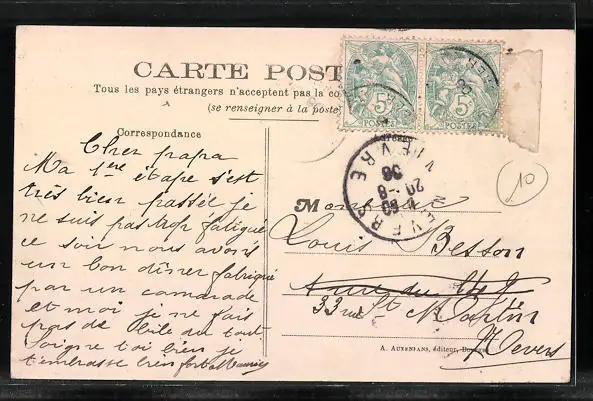 CARTE POST
Tous les pays étrangers n'acceptent pas la co
(se renseigner à la poste
5c 5c
POSTES POSTES
Correspondance
Cher papa
Ma 1ère étape s'est
très bien passée je
ne suis pas trop fatigué
ce soir nous avons
un bon dîner fabriqué
par un camarade
et moi je ne fais
pas de bile du tout
Soigne toi bien je
t'embrasse bien fort Maurice
NEVERS
NIEVRE
20 -8
06
10
Monsieur
Louis Besson
4 rue du
33 rue St Martin
Nevers
A. AUXENFANS, éditeur,